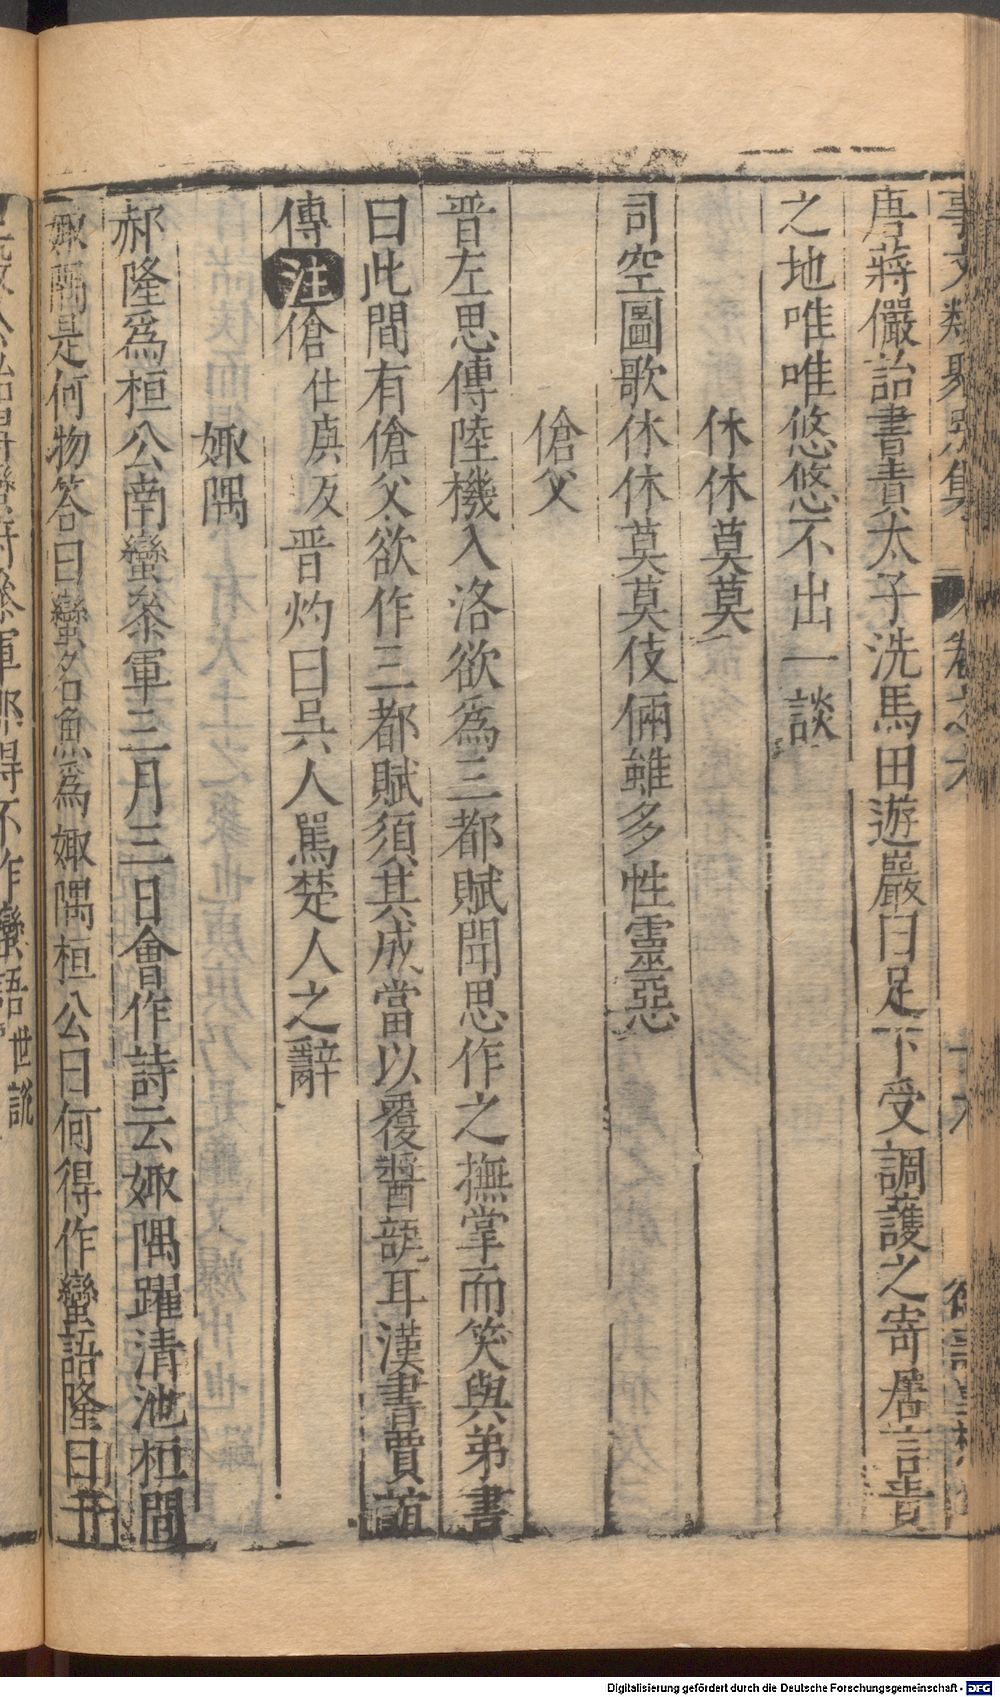 唐蔣儼詒書責太子洗馬田遊巖曰足下受調護之寄居言責
之地唯唯悠悠不出一談
休休莫莫
司空圖歌休休莫莫伎倆雖多性靈惡
傖父
晉左思傳陸機入洛欲爲三都賦聞思作之撫掌而笑與弟書
曰此間有傖父欲作三都賦須其成當以覆醬瓿耳漢書賈誼
傳注傖仕庚反晉灼曰吳人罵楚人之辭
娵隅
郝隆爲桓公南蠻叅軍三月三日會作詩云娵隅躍清池桓問
娵隅是何物答曰蠻名魚爲娵隅桓公曰何得作蠻語隆曰
得不作蠻語世說
Digitalisierung gefördert durch die Deutsche Forschungsgemeinschaft - DFG